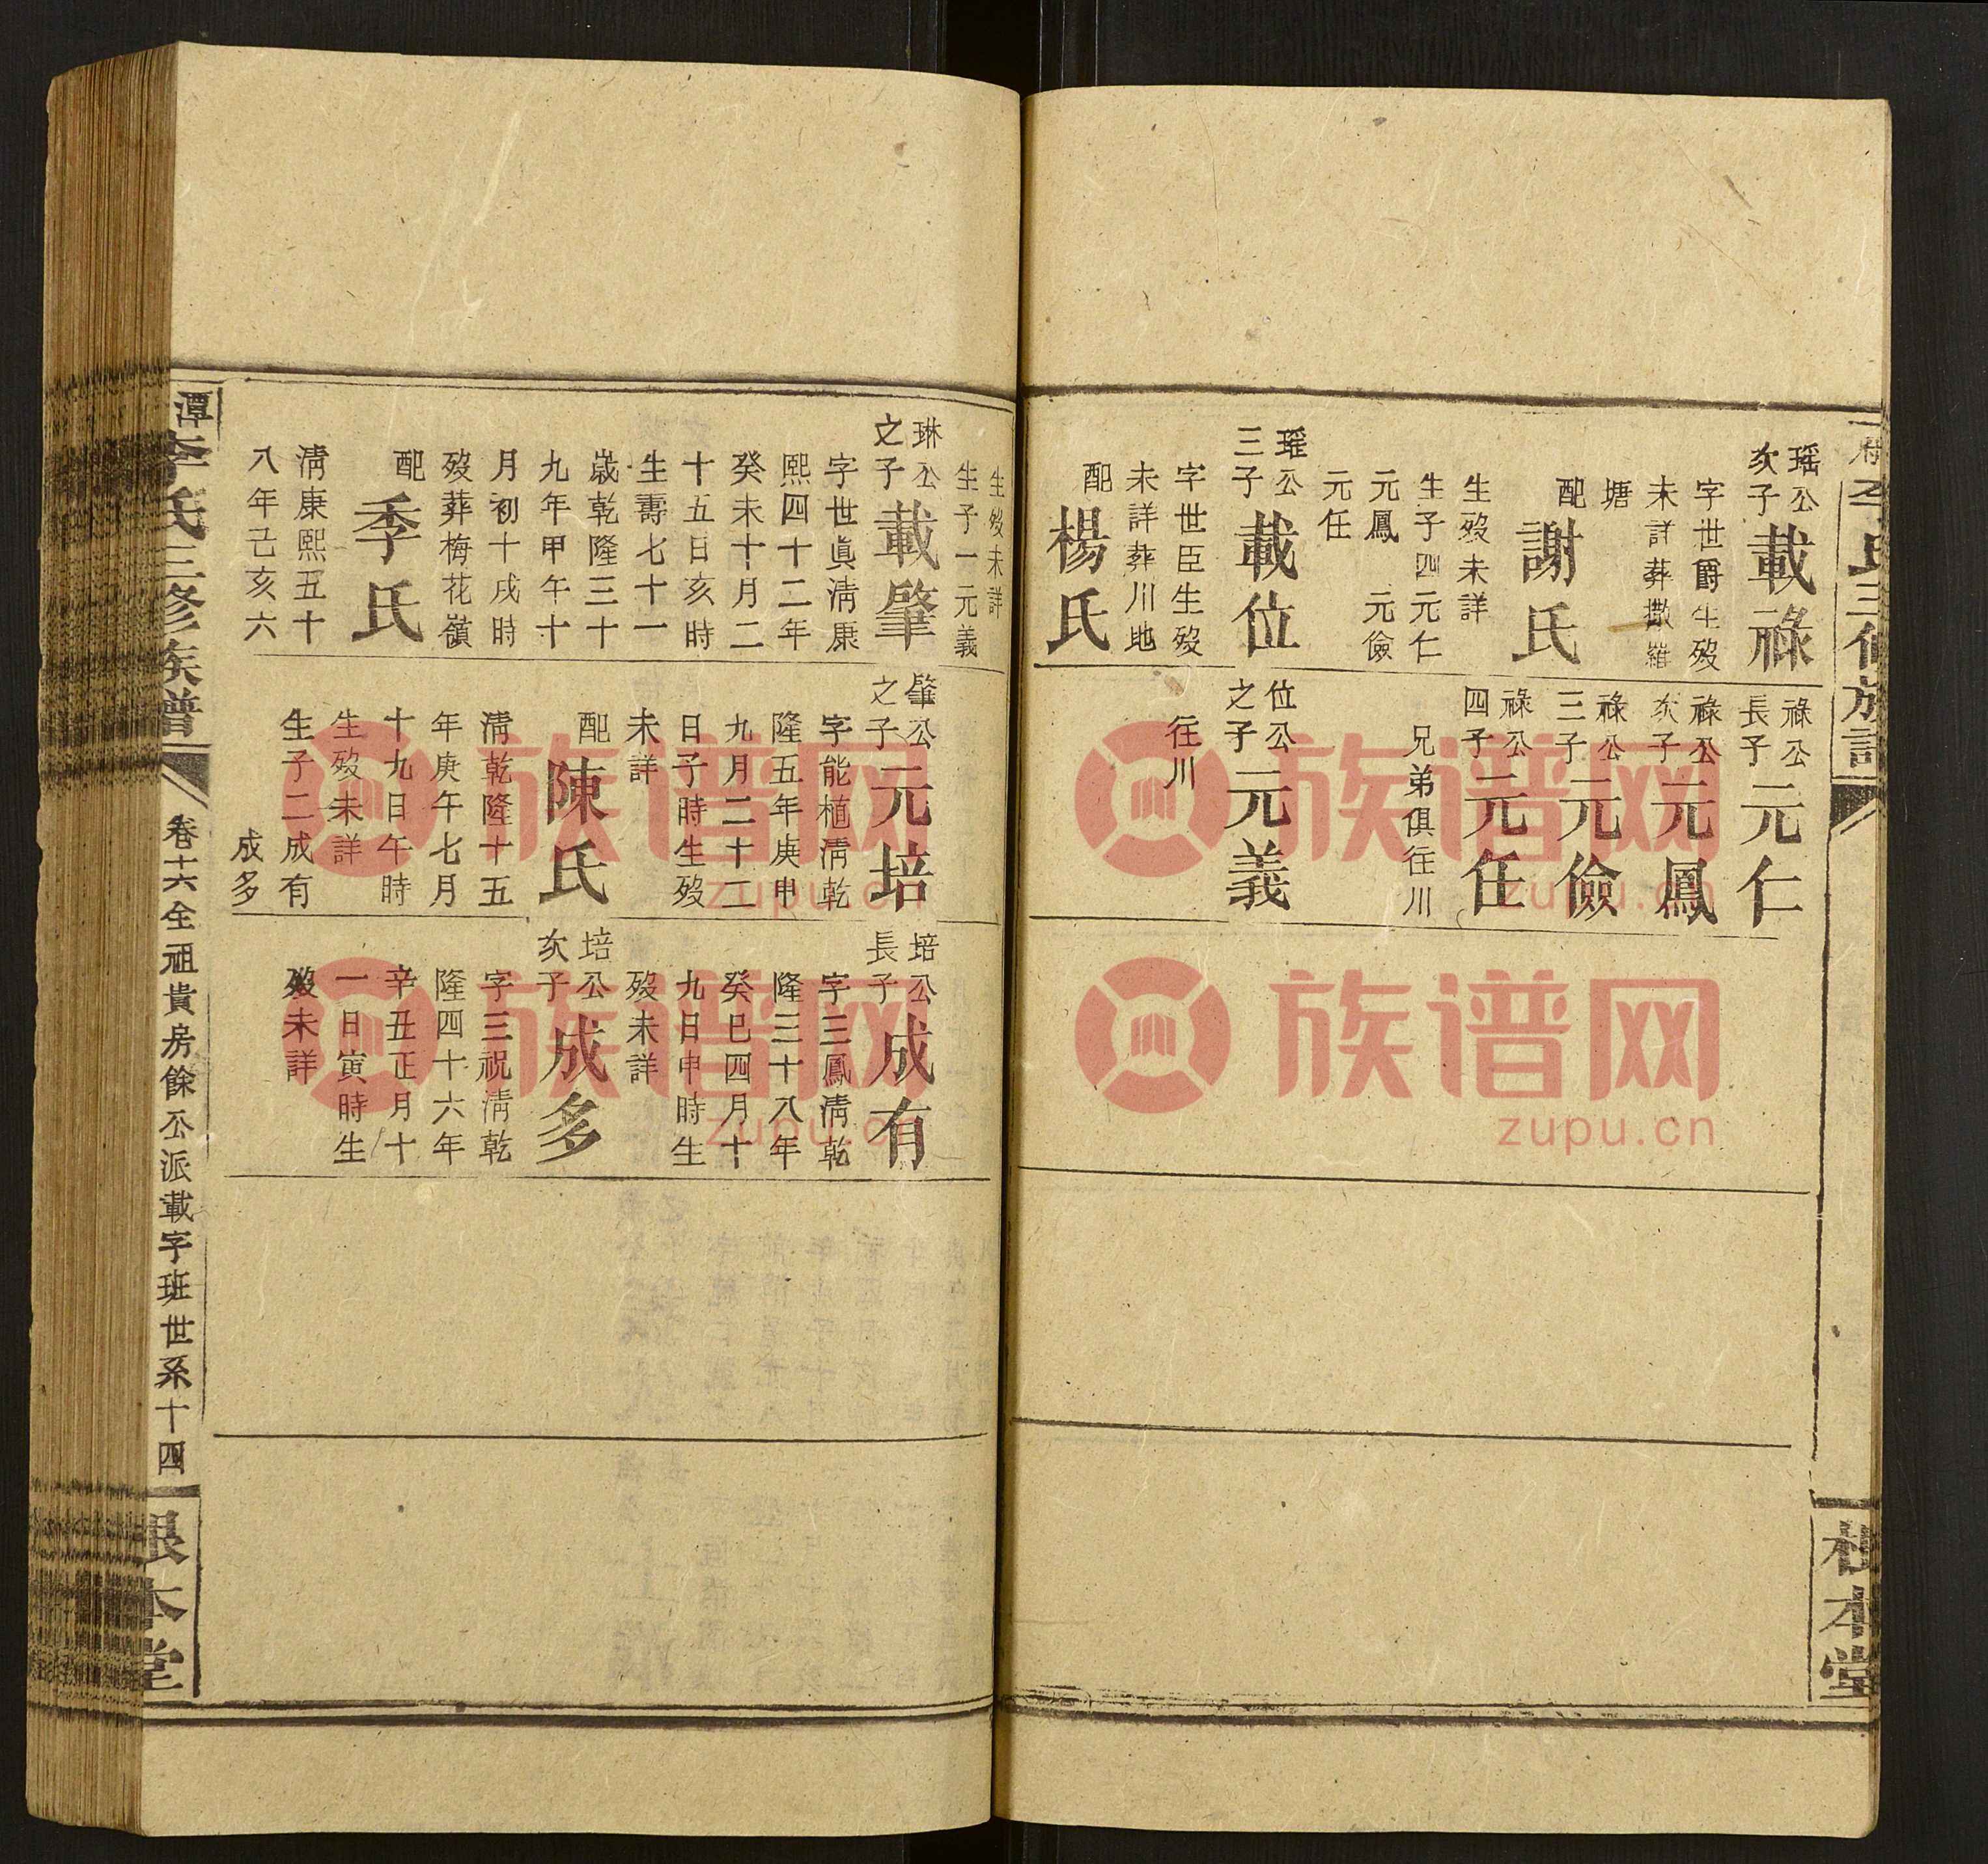 李氏三修族譜
根本堂
瑶公
次子
載祿
字世爵生歿
未詳葬撒羅
塘
配
謝氏
生歿未詳
生子四元仁
元鳳 元儉
元任
瑶公
三子
載位
字世臣生歿
未詳葬川地
配
楊氏
祿公
長子
元仁
祿公
次子
元鳳
祿公
三子
元儉
祿公
四子
元任
兄弟俱往川
位公
之子
元義
往川
生歿未詳
生子一元義
琳公
之子
載肇
字世眞淸康
熙四十二年
癸未十月二
十五日亥時
生壽七十一
歲乾隆三十
九年甲午十
月初十戌時
歿葬梅花嶺
配
季氏
淸康熙五十
八年己亥六
肇公
之子
元培
字能植淸乾
隆五年庚申
九月二十二
日子時生歿
未詳
配
陳氏
淸乾隆十五
年庚午七月
十九日午時
生歿未詳
生子二成有
成多
培公
長子
成有
字三鳳淸乾
隆三十八年
癸巳四月十
九日申時生
歿未詳
培公
次子
成多
字三祝淸乾
隆四十六年
辛丑正月十
一日寅時生
歿未詳
潭
李氏三修族譜
卷十六全祖貴房餘公派載字班世系十四
根本堂
族谱网
zupu.cn
族谱网
zupu.cn
族谱网
zupu.cn
族谱网
zupu.cn